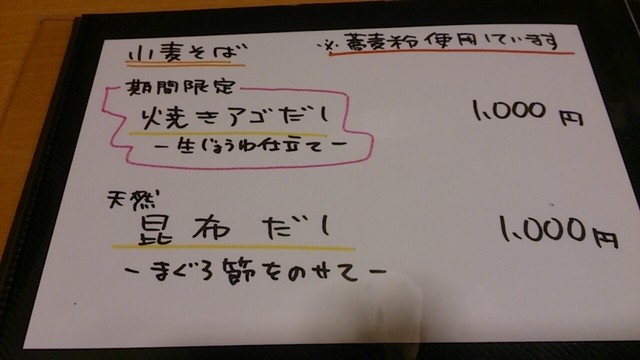 小麦そば
※蕎麦粉使用しています
期間限定
焼きアゴだし
1,000円
ー生じょうゆ仕立てー
天然
昆布だし
1,000円
ーまぐろ節をのせてー